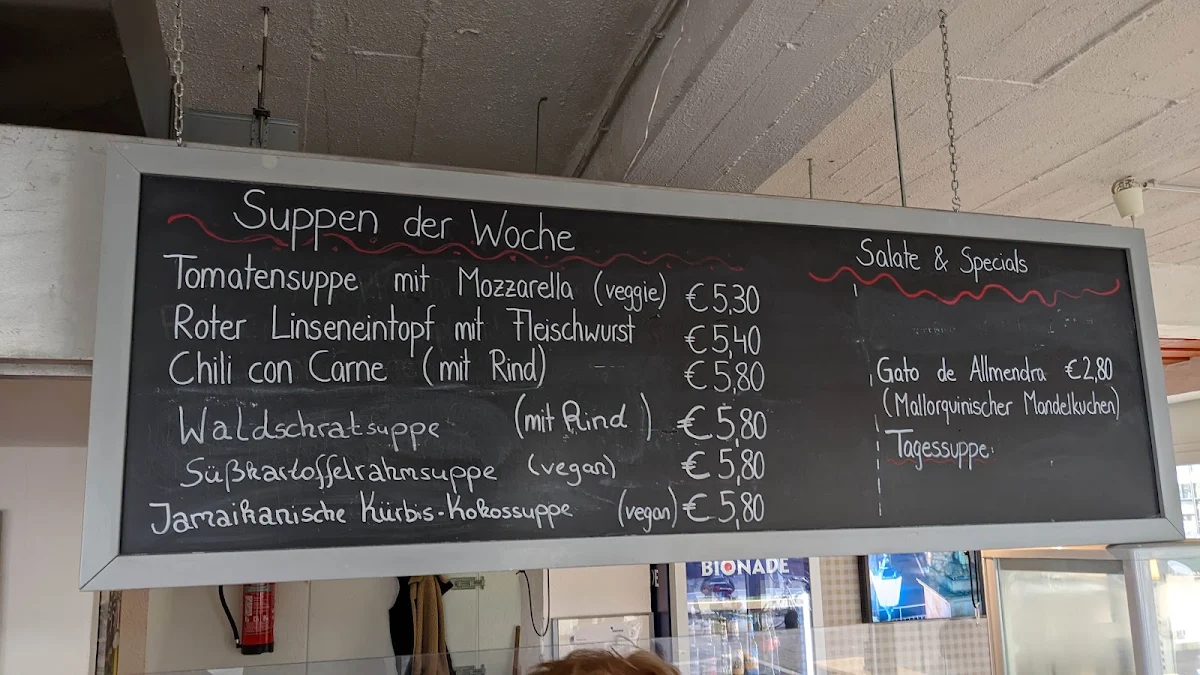 Suppen der Woche
Tomatensuppe mit Mozzarella (veggie) €5,30
Roter Linseneintopf mit Fleischwurst €5,40
Chili con Carne (mit Rind) €5,80
Waldschratsuppe (mit Rind) €5,80
Süßkartoffelrahmsuppe (vegan) €5,80
Jamaikanische Kürbis-Kokossuppe (vegan) €5,80
Salate & Specials
Gato de Allmendra €2,80
(Mallorquinischer Mandelkuchen)
Tagessuppe:
BIONADE